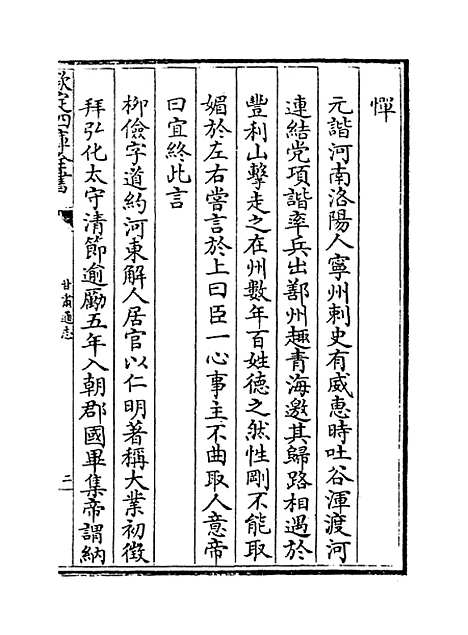 憚
元諧河南洛陽人寧州刺史有威惠時吐谷渾渡河
連結党項諧率兵出鄯州趣青海邀其歸路相遇於
豐利山擊走之在州數年百姓德之然性剛不能取
媚於左右嘗言於上曰臣一心事主不曲取人意帝
曰宜終此言
柳儉字道約河東解人居官以仁明著稱大業初徴
拜弘化太守清節逾勵五年入朝郡國畢集帝謂納
欽定四庫全書
甘肅通志